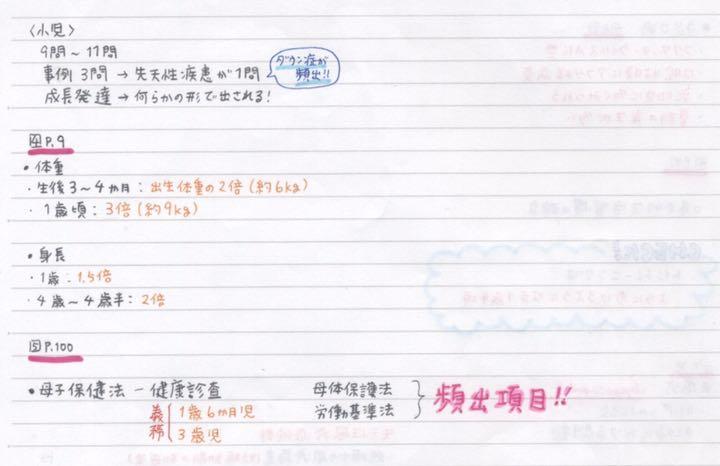 〈小児〉
9問〜11問
事例 3問 → 先天性疾患が1問
ダウン症が
頻出!!
成長発達 → 何らかの形で出される!
図P.9
• 体重
・生後3〜4か月:出生体重の2倍(約6kg)
・1歳頃:3倍(約9kg)
• 身長
・1歳:1.5倍
・4歳〜4歳半:2倍
図P.100
• 母子保健法 − 健康診査
義務
1歳6か月児
3歳児
母体保護法
労働基準法
頻出項目!!